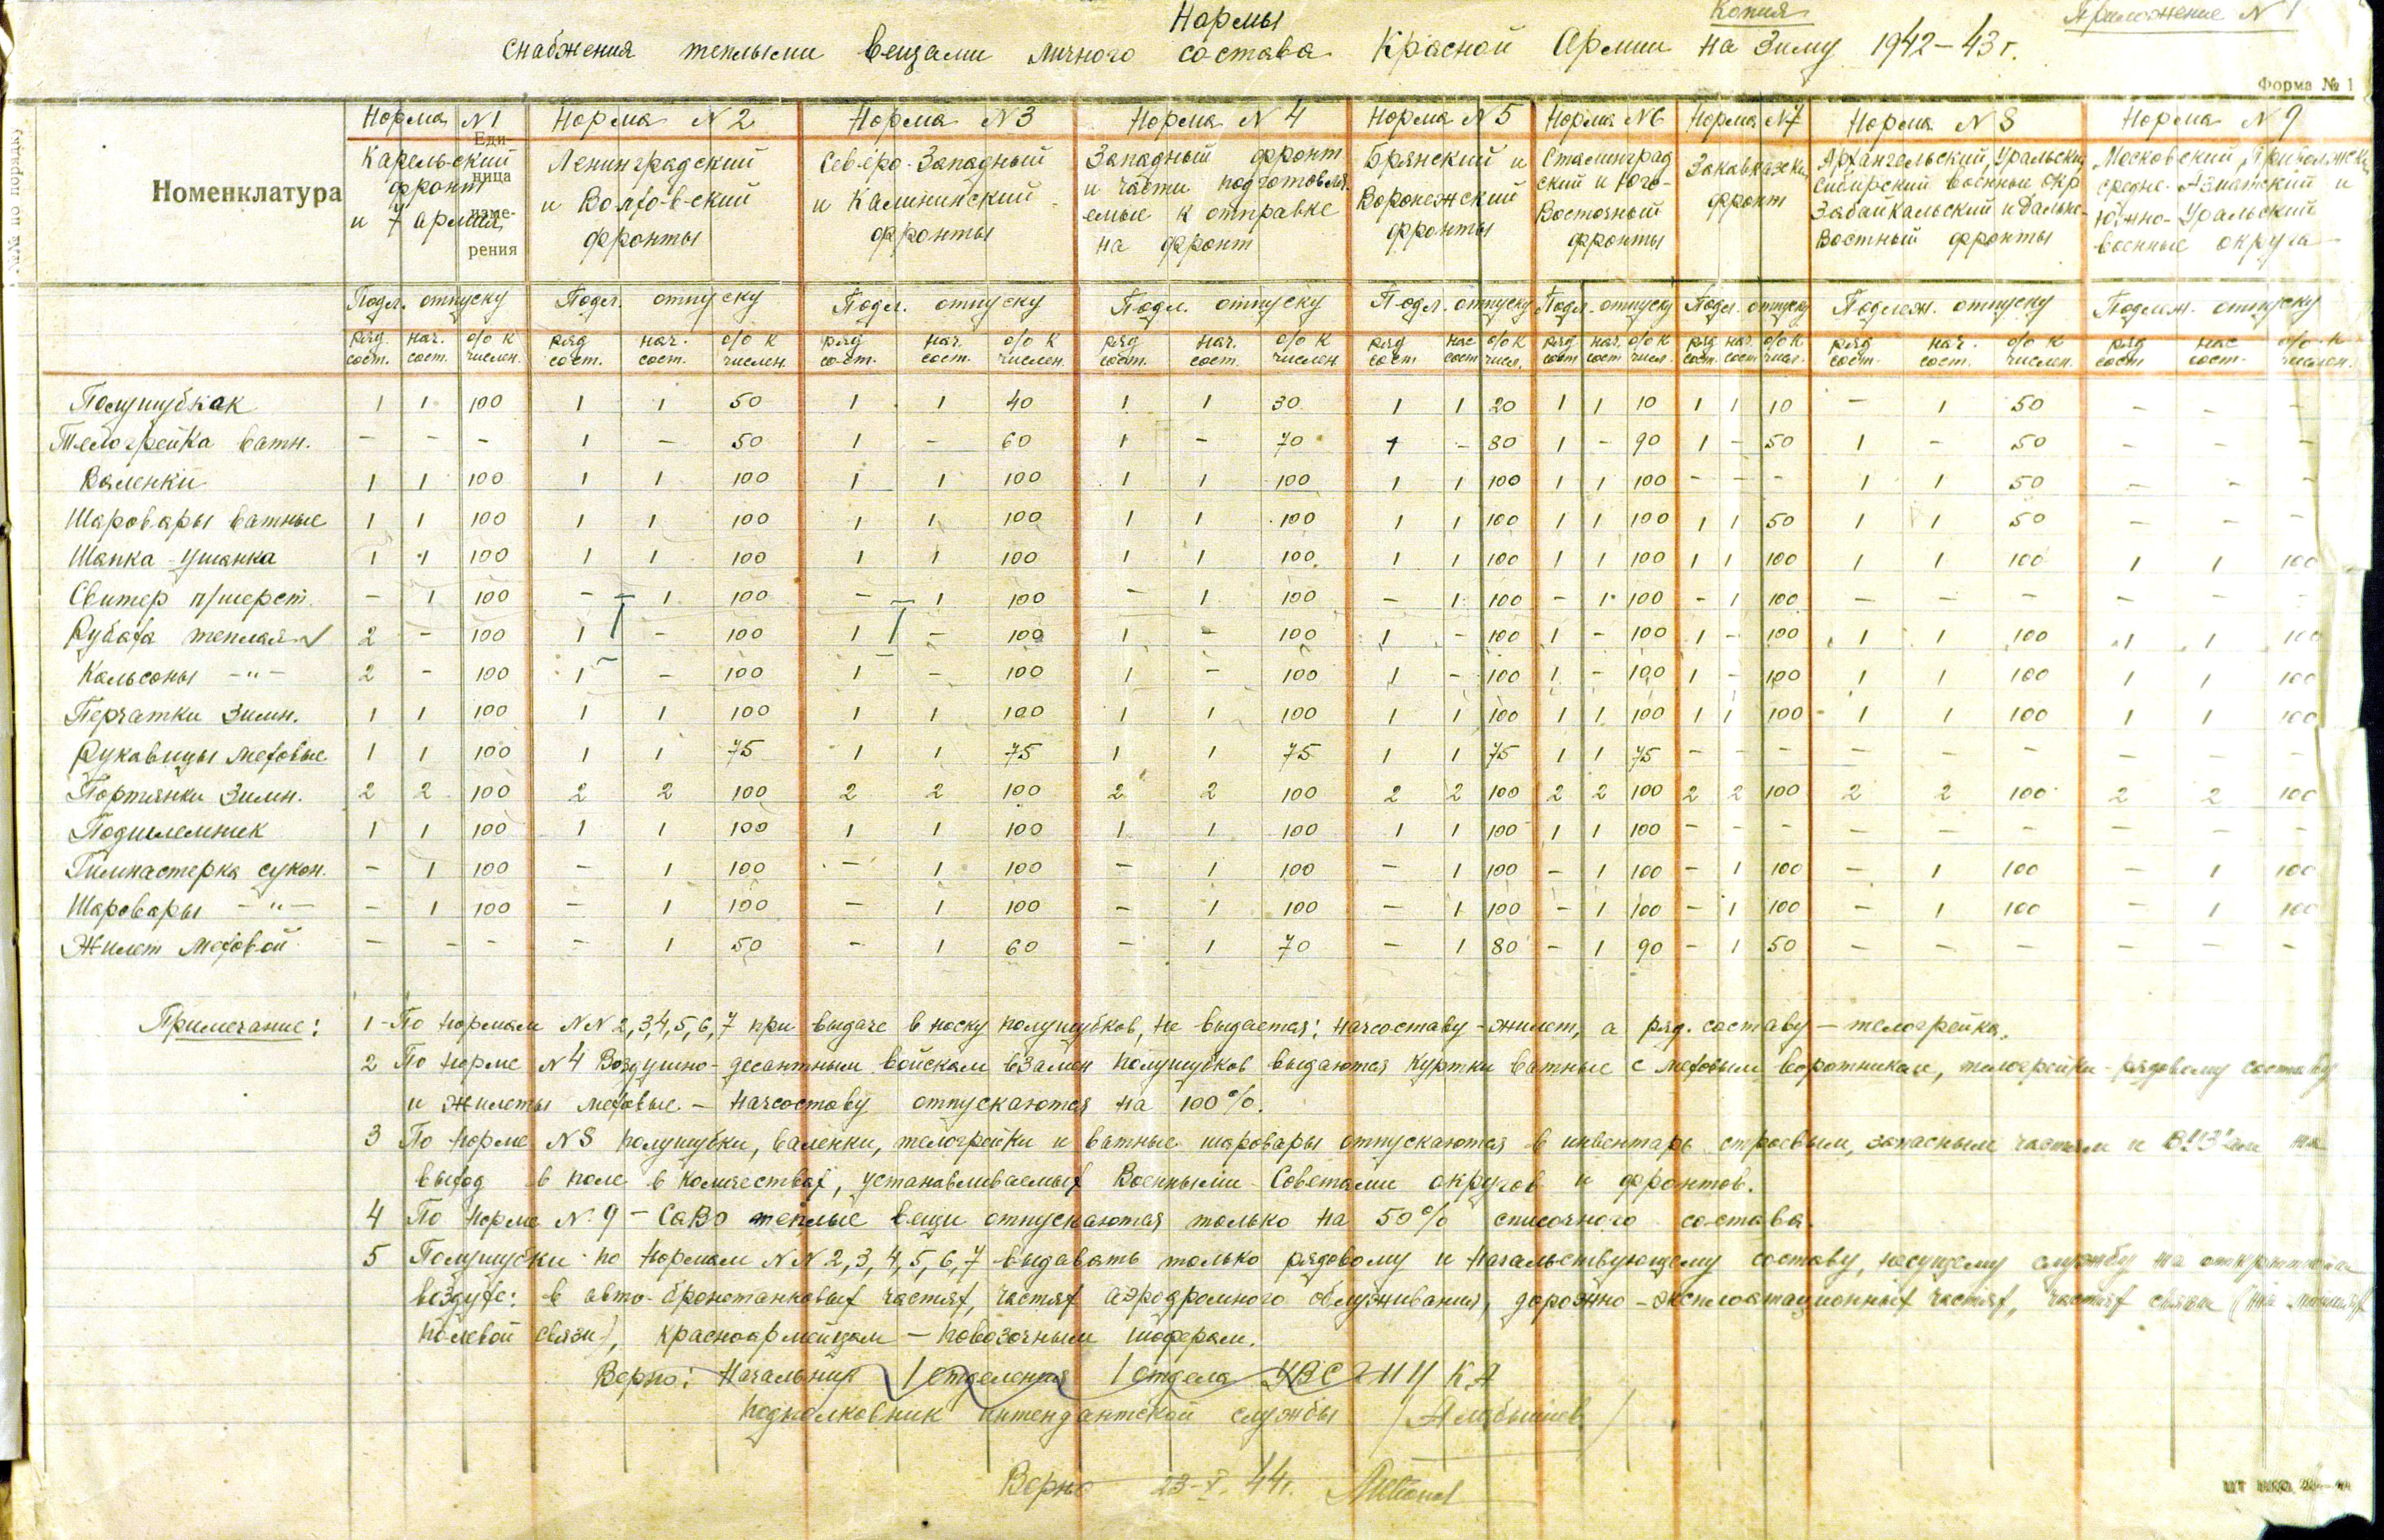 Копия
Приложение N 1
Нормы
снабжения теплыми вещами личного состава Красной Армии на зиму 1942-43 г.
Форма № 1
№№ по порядку
Номенклатура
Единица измерения
Норма N 1 Норма N 2 Норма N 3 Норма N 4 Норма N 5 Норма N 6 Норма N 7 Норма N 8 Норма N 9
Карельский фронт и 7 армия
Ленинградский и Волховский фронты
Северо-Западный и Калининский фронты
Западный фронт и части подготовляемые к отправке на фронт
Брянский и Воронежский фронты
Сталинградский и Юго-Восточный фронты
Закавказский фронт
Архангельский, Уральский Сибирский военные окр Забайкальский и Дальне-Восточный фронты
Московский, Приволжский Средне-Азиатский и Южно-Уральский военные округа
Подл. отпуску Подл. отпуску Подл. отпуску Подл. отпуску Подл. отпуску Подл. отпуску Подл. отпуску Подлеж. отпуску Подлеж. отпуску
ряд. сост. нач. сост. о/о к числен. ряд сост. нач. сост. о/о к числен. ряд сост. нач. сост. о/о к числен. ряд сост. нач. сост. о/о к числен. ряд сост. нас сост о/о к числ. ряд сост нач. сост о/о к числ. ряд сост. нач. сост о/о к числ. ряд сост. нач. сост. о/о к числен. ряд сост нас сост. о/о к числен.
Полушубкак 1 1 100 1 1 50 1 1 40 1 1 30 1 1 20 1 1 10 1 1 10 - 1 50 - - -
Телогрейка ватн. - - - 1 - 50 1 - 60 1 - 70 1 - 80 1 - 90 1 - 50 1 - 50 - - -
Валенки 1 1 100 1 1 100 1 1 100 1 1 100 1 1 100 1 1 100 - - - 1 1 50 - - -
Шаровары ватные 1 1 100 1 1 100 1 1 100 1 1 100 1 1 100 1 1 100 1 1 50 1 1 50 - - -
Шапка-ушанка 1 1 100 1 1 100 1 1 100 1 1 100 1 1 100 1 1 100 1 1 100 1 1 100 1 1 100
Свитер п/шерст. - 1 100 - 1 100 - 1 100 - 1 100 - 1 100 - 1 100 - 1 100 - - - - - -
Рубаха теплая 2 - 100 1 - 100 1 - 100 1 - 100 1 - 100 1 - 100 1 - 100 1 1 100 1 1 100
Кальсоны -"- 2 - 100 1 - 100 1 - 100 1 - 100 1 - 100 1 - 100 1 - 100 1 1 100 1 1 100
Перчатки зимн. 1 1 100 1 1 100 1 1 100 1 1 100 1 1 100 1 1 100 1 1 100 1 1 100 1 1 100
Рукавицы меховые 1 1 100 1 1 75 1 1 75 1 1 75 1 1 75 1 1 75 - - - - - - - - -
Портянки зимн. 2 2 100 2 2 100 2 2 100 2 2 100 2 2 100 2 2 100 2 2 100 2 2 100 2 2 100
Подшлемник 1 1 100 1 1 100 1 1 100 1 1 100 1 1 100 1 1 100 - - - - - - - - -
Гимнастерка сукон. - 1 100 - 1 100 - 1 100 - 1 100 - 1 100 - 1 100 - 1 100 - 1 100 - 1 100
Шаровары -"- - 1 100 - 1 100 - 1 100 - 1 100 - 1 100 - 1 100 - 1 100 - 1 100 - 1 100
Жилет меховой - - - - 1 50 - 1 60 - 1 70 - 1 80 - 1 90 - 1 50 - - - - - -
Примечание: 1 - По нормам NN 2,3,4,5,6,7 при выдаче в носку полушубков, не выдается: начсоставу - жилет, а ряд. составу - телогрейка.
2 По норме N 4 Воздушно-десантным войскам взамен полушубков выдаются куртки ватные с меховым воротником, телогрейки - рядовому составу
и жилеты меховые - начсоставу отпускаются на 100%.
3 По норме N 8 полушубки, валенки, телогрейки и ватные шаровары отпускаются в инвентарь строевым, запасным частям и ВУЗ'ам на
выход в поле в количествах, устанавливаемых Военными Советами округов и фронтов.
4 По норме N 9 - СаВО теплые вещи отпускаются только на 50% списочного состава.
5 Полушубки по нормам NN 2,3,4,5,6,7 выдавать только рядовому и начальствующему составу, несущему службу на открытом
воздухе: в авто-бронетанковых частях, частях аэродромного обслуживания, дорожно-эксплоатационных частях, частях связи (на линиях
полевой связи), красноармейцам - повозочным шоферам.
Верно: Начальник 1 отделения 1 отдела УВС ГИУ КА
подполковник интендантской службы
Верно 23-X. 44г.